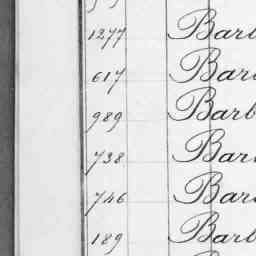 1277 Barb
617 Bar
989 Barb
738 Bar
746 Bar
189 Barb